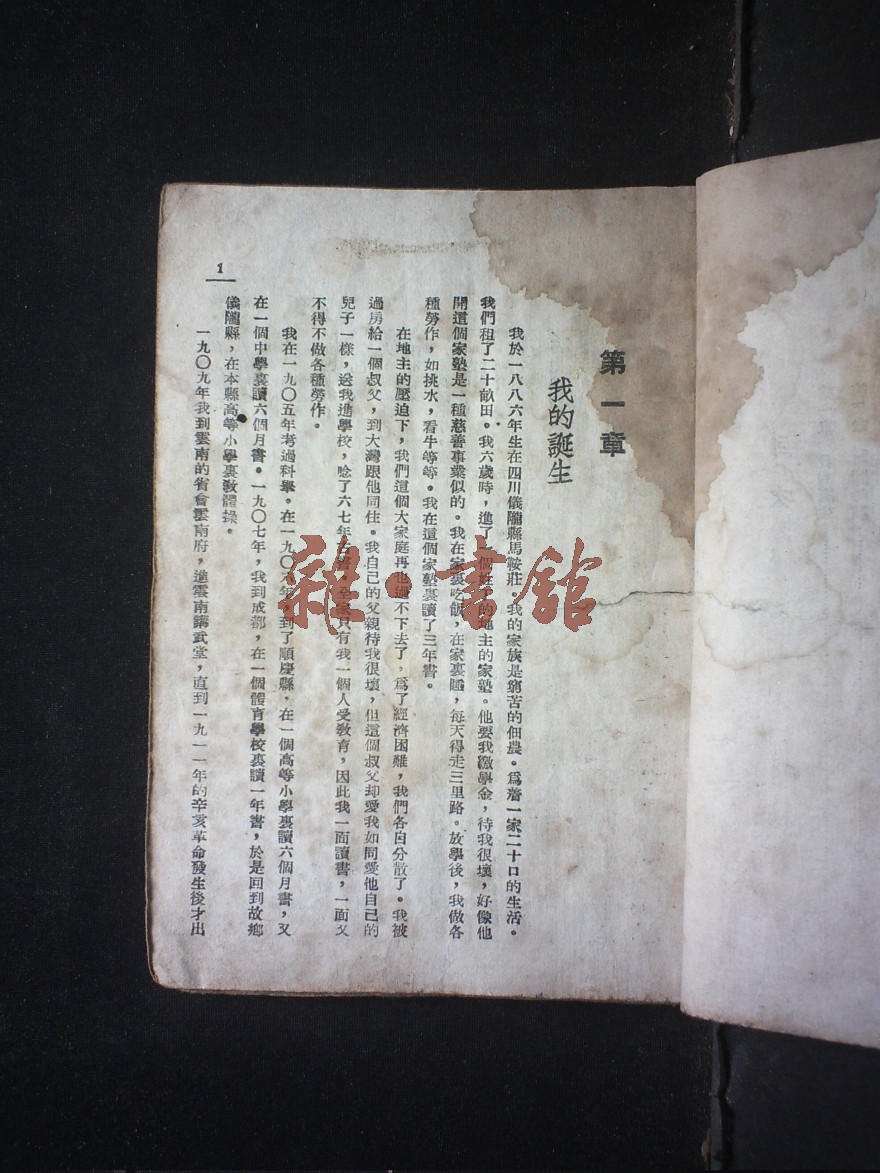 第一章
我的誕生
我於一八八六年生在四川儀隴縣馬鞍莊。我的家族是窮苦的佃農。爲着一家二十口的生活。
我們租了二十畝田。我六歲時，進了一個姓丁的地主的家塾。他要我繳學金，待我很壞，好像他
開這個家塾是一種慈善事業似的。我在家裏吃飯，在家裏睡，每天得走三里路。放學後，我做各
種勞作，如挑水，看牛等等。我在這個家塾裏讀了三年書。
在地主的壓迫下，我們這個大家庭再也過不下去了。爲了經濟困難，我們各自分散了。我被
過房給一個叔父，到大灣跟他同住。我自己的父親待我很壞，但這個叔父却愛我如同愛他自己的
兒子一樣，送我進學校，唸了六七年古書。全家只有我一個人受教育，因此我一面讀書，一面又
不得不做各種勞作。
我在一九〇五年考過科舉。在一九〇六年，到了順慶縣，在一個高等小學裏讀六個月書，又
在一個中學裏讀六個月書。一九〇七年，我到成都，在一個體育學校裏讀一年書，於是回到故鄉
儀隴縣，在本縣高等小學裏教體操。
一九〇九年我到雲南的省會雲南府，進雲南講武堂，直到一九一一年的辛亥革命發生後才出
1
雜·書館